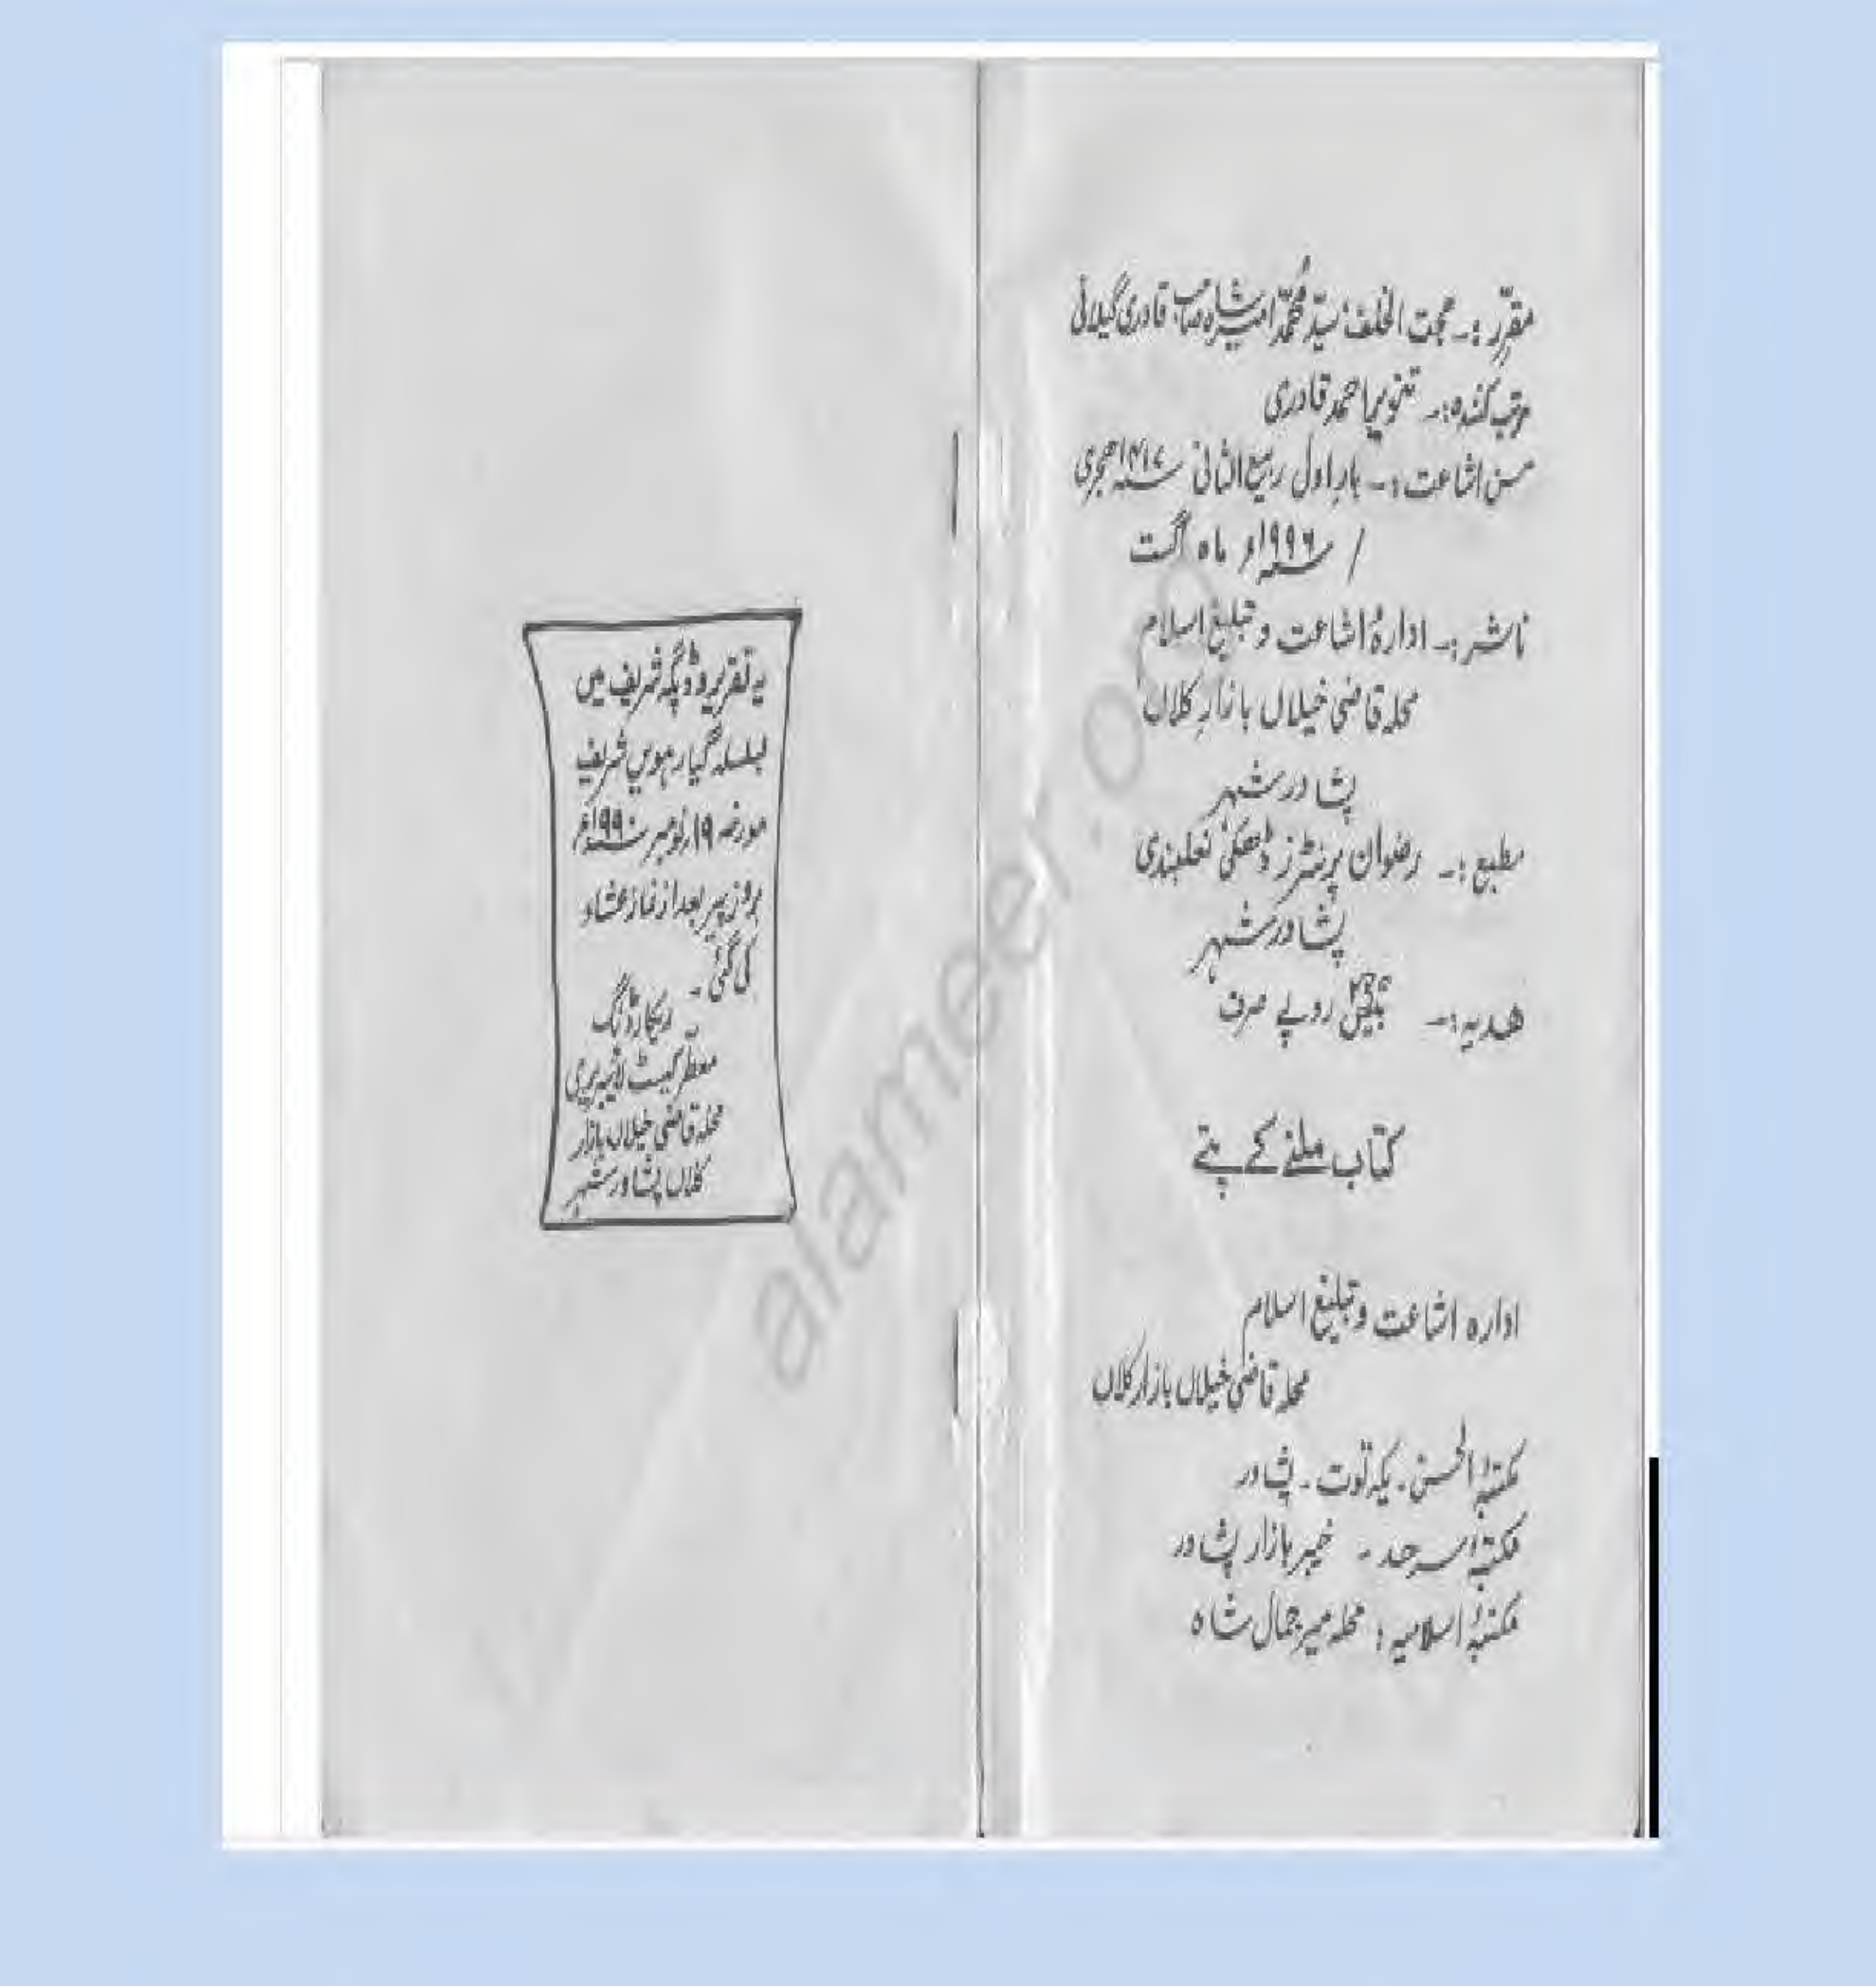 مقرّر :۔ حجت الخلف سیّد محمّد امیر شاہ صاحب قادری گیلانی
مرتب کنندہ:۔ تنویر احمد قادری
سن اشاعت :۔ بارِ اول ربیع الثانی ۱۴۱۷ سنہ ہجری
/ ۱۹۹۶ء ماہ اگست
ناشر :۔ ادارۂ اشاعت و تبلیغ اسلام
محلہ قاضی خیلاں بازارِ کلاں
پشاور شہر
مطبع :۔ رضوان پرنٹرز ڈھکی نعلبندی
پشاور شہر
ھدیہ :۔ روپے صرف
کتاب ملنے کے پتے
ادارہ اشاعت و تبلیغ اسلام
محلہ قاضی خیلاں بازار کلاں
مکتبۂ الحسن ۔ یکہ توت ۔ پشاور
مکتبۂ سرحد ۔ خیبر بازار پشاور
مکتبۂ اسلامیہ : محلہ میر جمال شاہ
یہ تقریر وڈپگہ شریف میں
بسلسلہ گیارہویں شریف
مورخہ ۱۹ نومبر ۱۹۹۰ء
بروز پیر بعد از نماز عشاء
کی گئی ۔
ریکارڈنگ
معطر کیسٹ لائبریری
محلہ قاضی خیلاں بازار
کلاں پشاور شہر
alameer.org